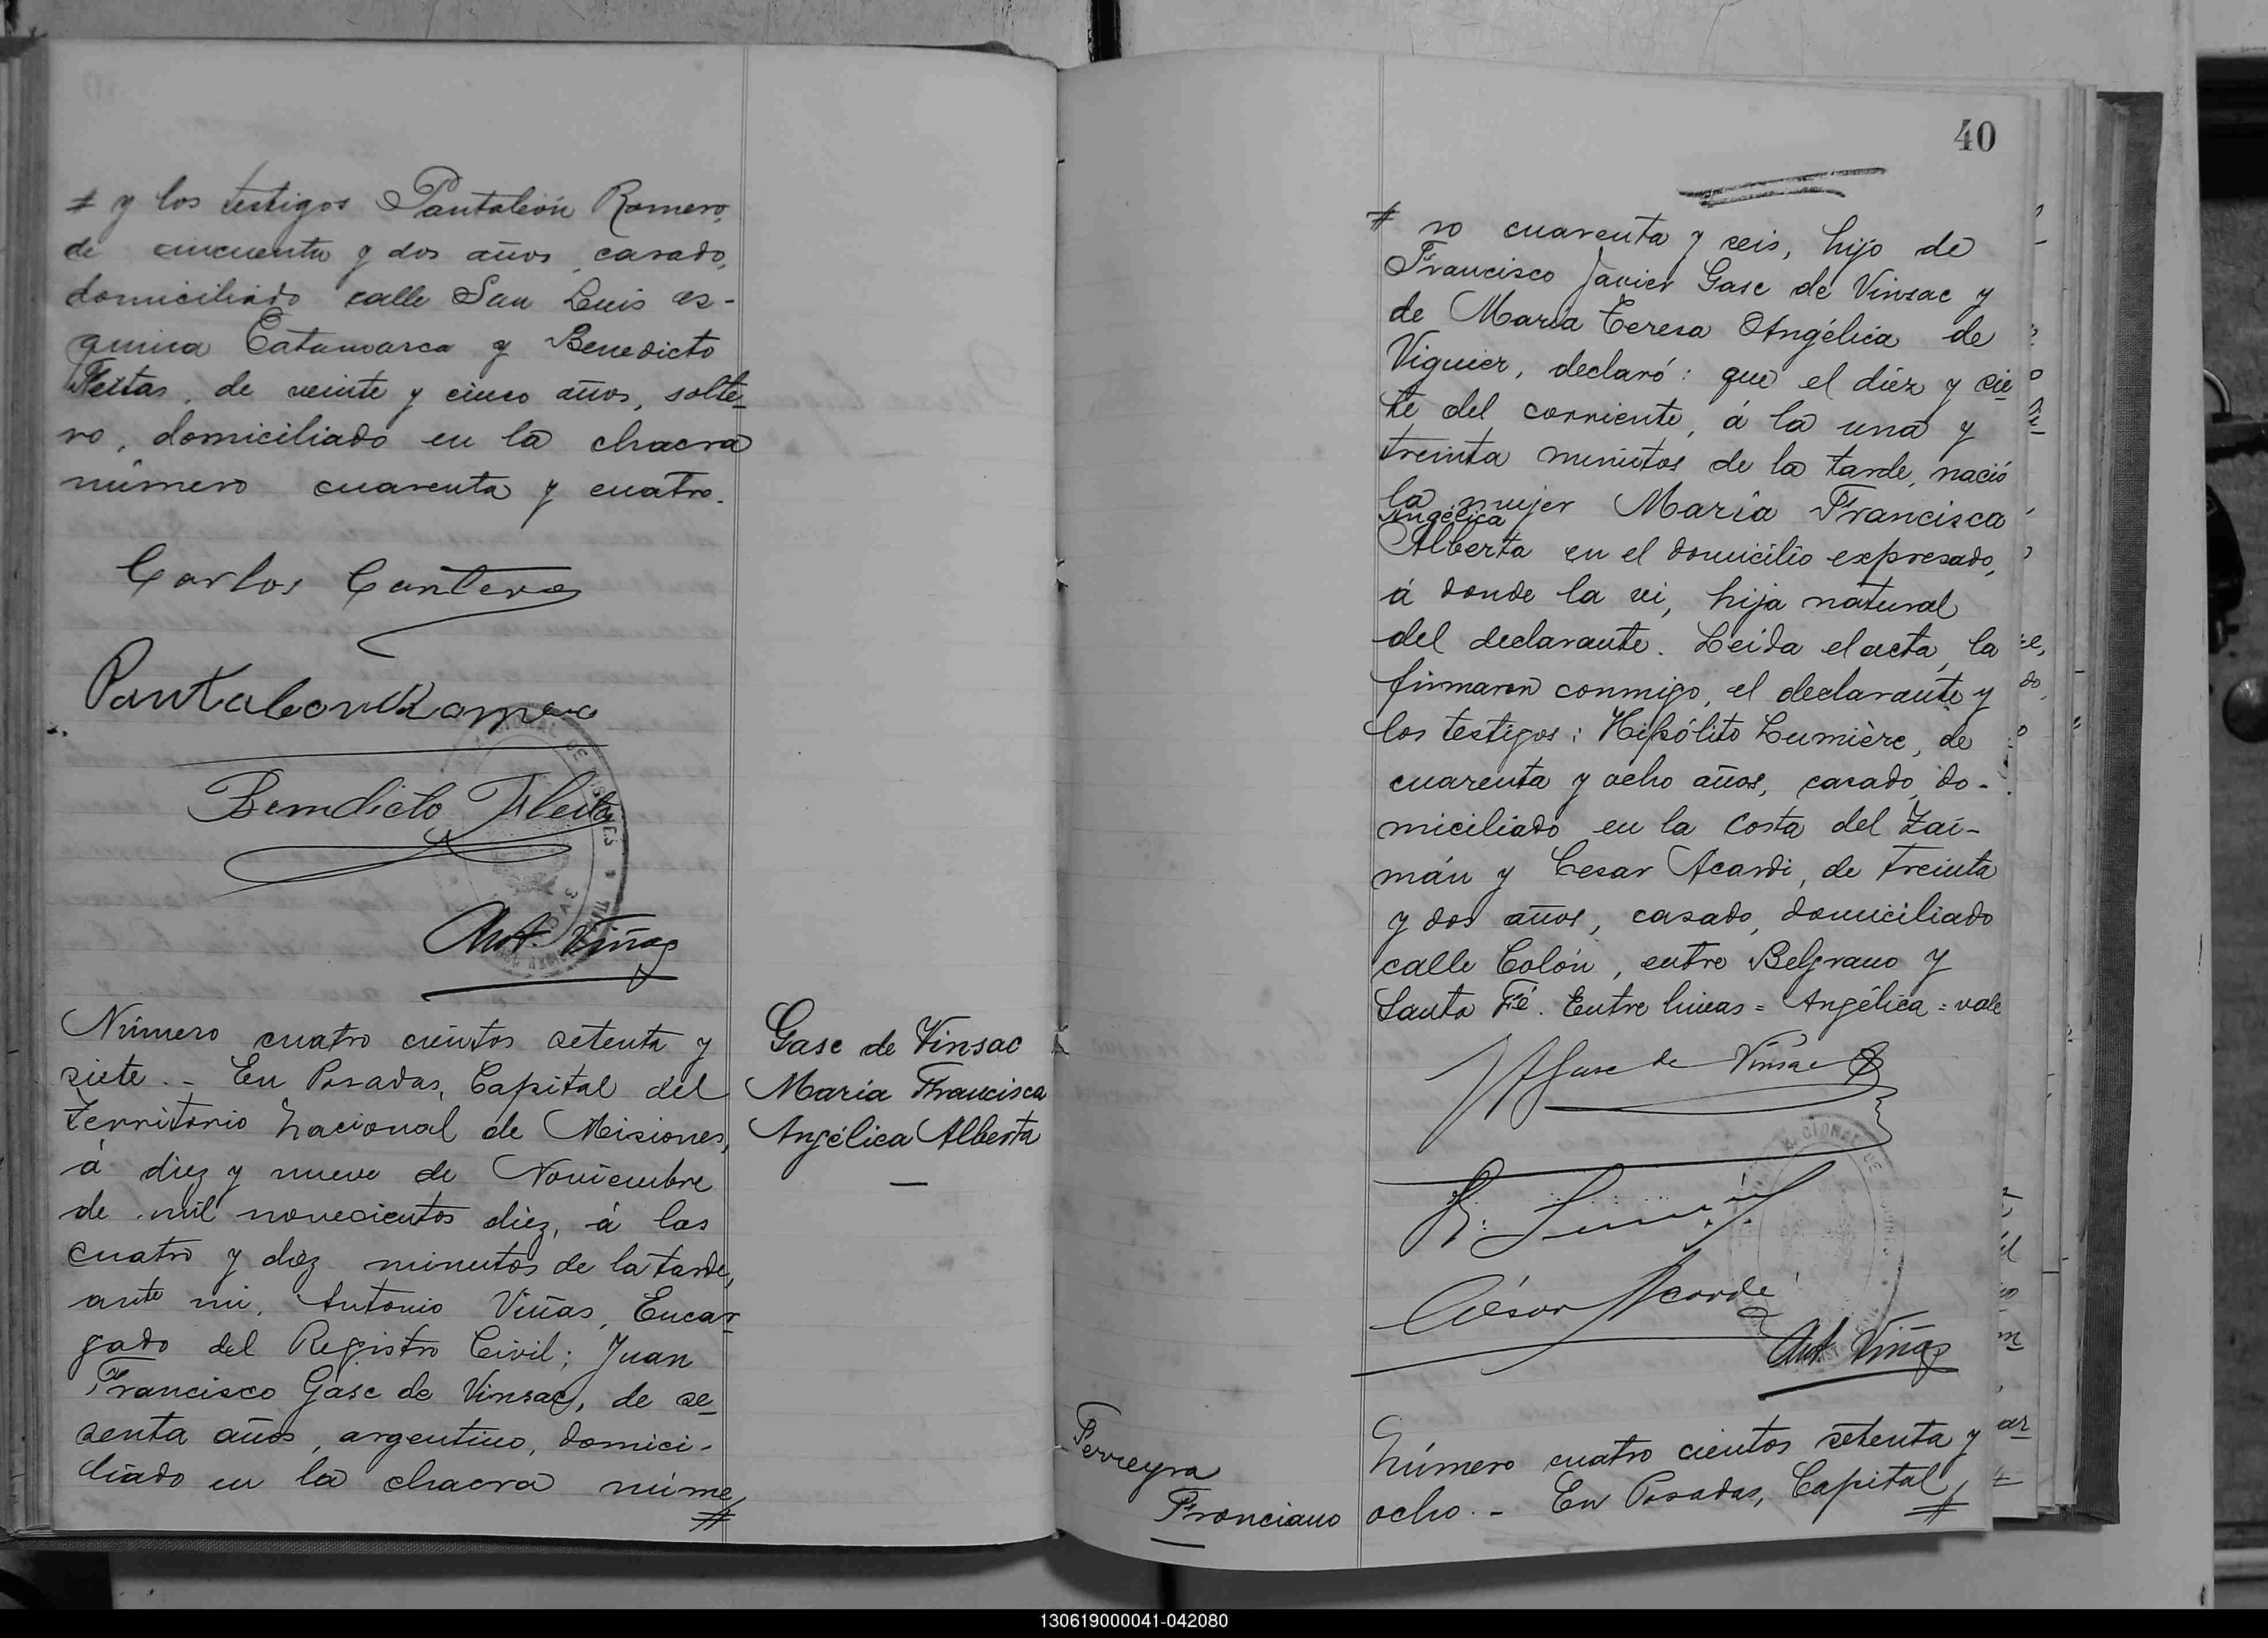 # y los testigos Pantaleón Romero,
de cincuenta y dos años, casado,
domiciliado calle San Luis es-
quina Catamarca y Benedicto
Fleitas, de veinte y cinco años, solte-
ro, domiciliado en la chacra
número cuarenta y cuatro.
Carlos Cantero
Pantaleon Romero
Benedicto Fleita
Ant. Viñas
Número cuatro cientos setenta y
siete.- En Posadas, Capital del
Territorio Nacional de Misiones,
á diez y nueve de Noviembre
de mil novecientos diez, á las
cuatro y diez minutos de la tarde,
ante mi, Antonio Viñas, Encar-
gado del Registro Civil; Juan
Francisco Gasc de Vinsac, de se-
senta años, argentino, domici-
liado en la chacra núme
#
Gasc de Vinsac
María Francisca
Angélica Alberta
40
# ro cuarenta y seis, hijo de
Francisco Javier Gasc de Vinsac y
de María Teresa Angélica de
Viguier, declaró: que el diez y sie
te del corriente, á la una y
treinta minutos de la tarde, nació
la mujer María Francisca
Angélica
Alberta en el domicilio expresado,
á donde la vi, hija natural
del declarante. Leída el acta, la
firmaron conmigo, el declarante y
los testigos: Hipólito Lumière, de
cuarenta y ocho años, casado, do-
miciliado en la costa del Zai-
mán y Cesar Acardi, de treinta
y dos años, casado, domiciliado
calle Colón, entre Belgrano y
Santa Fé. Entre lineas = Angélica = vale
Gasc de Vinsac
César Acardi
Ant. Viñas
Ferreyra
Pronciano
Número cuatro cientos setenta y
ocho.- En Posadas, Capital
#
130619000041-042080